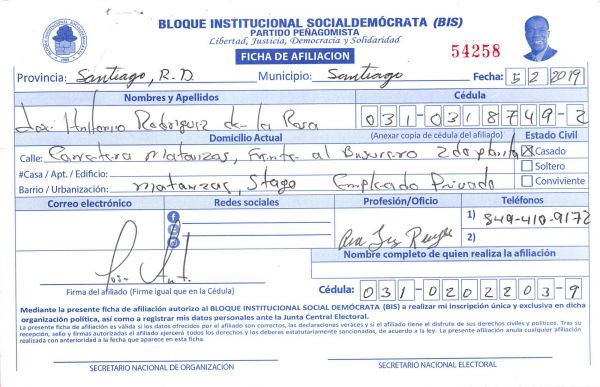 BLOQUE INSTITUCIONAL SOCIALDEMÓCRATA (BIS)
PARTIDO PEÑAGOMISTA
Libertad, Justicia, Democracia y Solidaridad
FICHA DE AFILIACION
54258
Provincia: Santiago, R.D. Municipio: Santiago Fecha: 5 2 2019
Nombres y Apellidos Cédula
José Antonio Rodriguez de la Rosa 031-0318749-2
Domicilio Actual (Anexar copia de cédula del afiliado) Estado Civil
Calle: Carretera Matanzas, Frente al 2da planta Casado
#Casa / Apt. / Edificio: Soltero
Barrio / Urbanización: Matanzas, Stago Empleado Privado Conviviente
Correo electrónico Redes sociales Profesión/Oficio Teléfonos
1) 849-410-9172
2)
Nombre completo de quien realiza la afiliación
Firma del afiliado (Firme igual que en la Cédula) Cédula: 031-0202203-9
Mediante la presente ficha de afiliación autorizo al BLOQUE INSTITUCIONAL SOCIAL DEMÓCRATA (BIS) a realizar mi inscripción única y exclusiva en dicha
organización política, así como a registrar mis datos personales ante la Junta Central Electoral.
La presente ficha de afiliación es válida si los datos ofrecidos por el afiliado son correctos, las declaraciones veraces y si el afiliado tiene el disfrute de sus derechos civiles y políticos. Tras su
recepción, sello y firmas autorizadas el afiliado ejercerá todos los derechos y los deberes estatutariamente sancionados, de acuerdo a la ley. La presente afiliación anula cualquier afiliación
realizada con anterioridad a la fecha que aparece en esta ficha.
SECRETARIO NACIONAL DE ORGANIZACIÓN SECRETARIO NACIONAL ELECTORAL